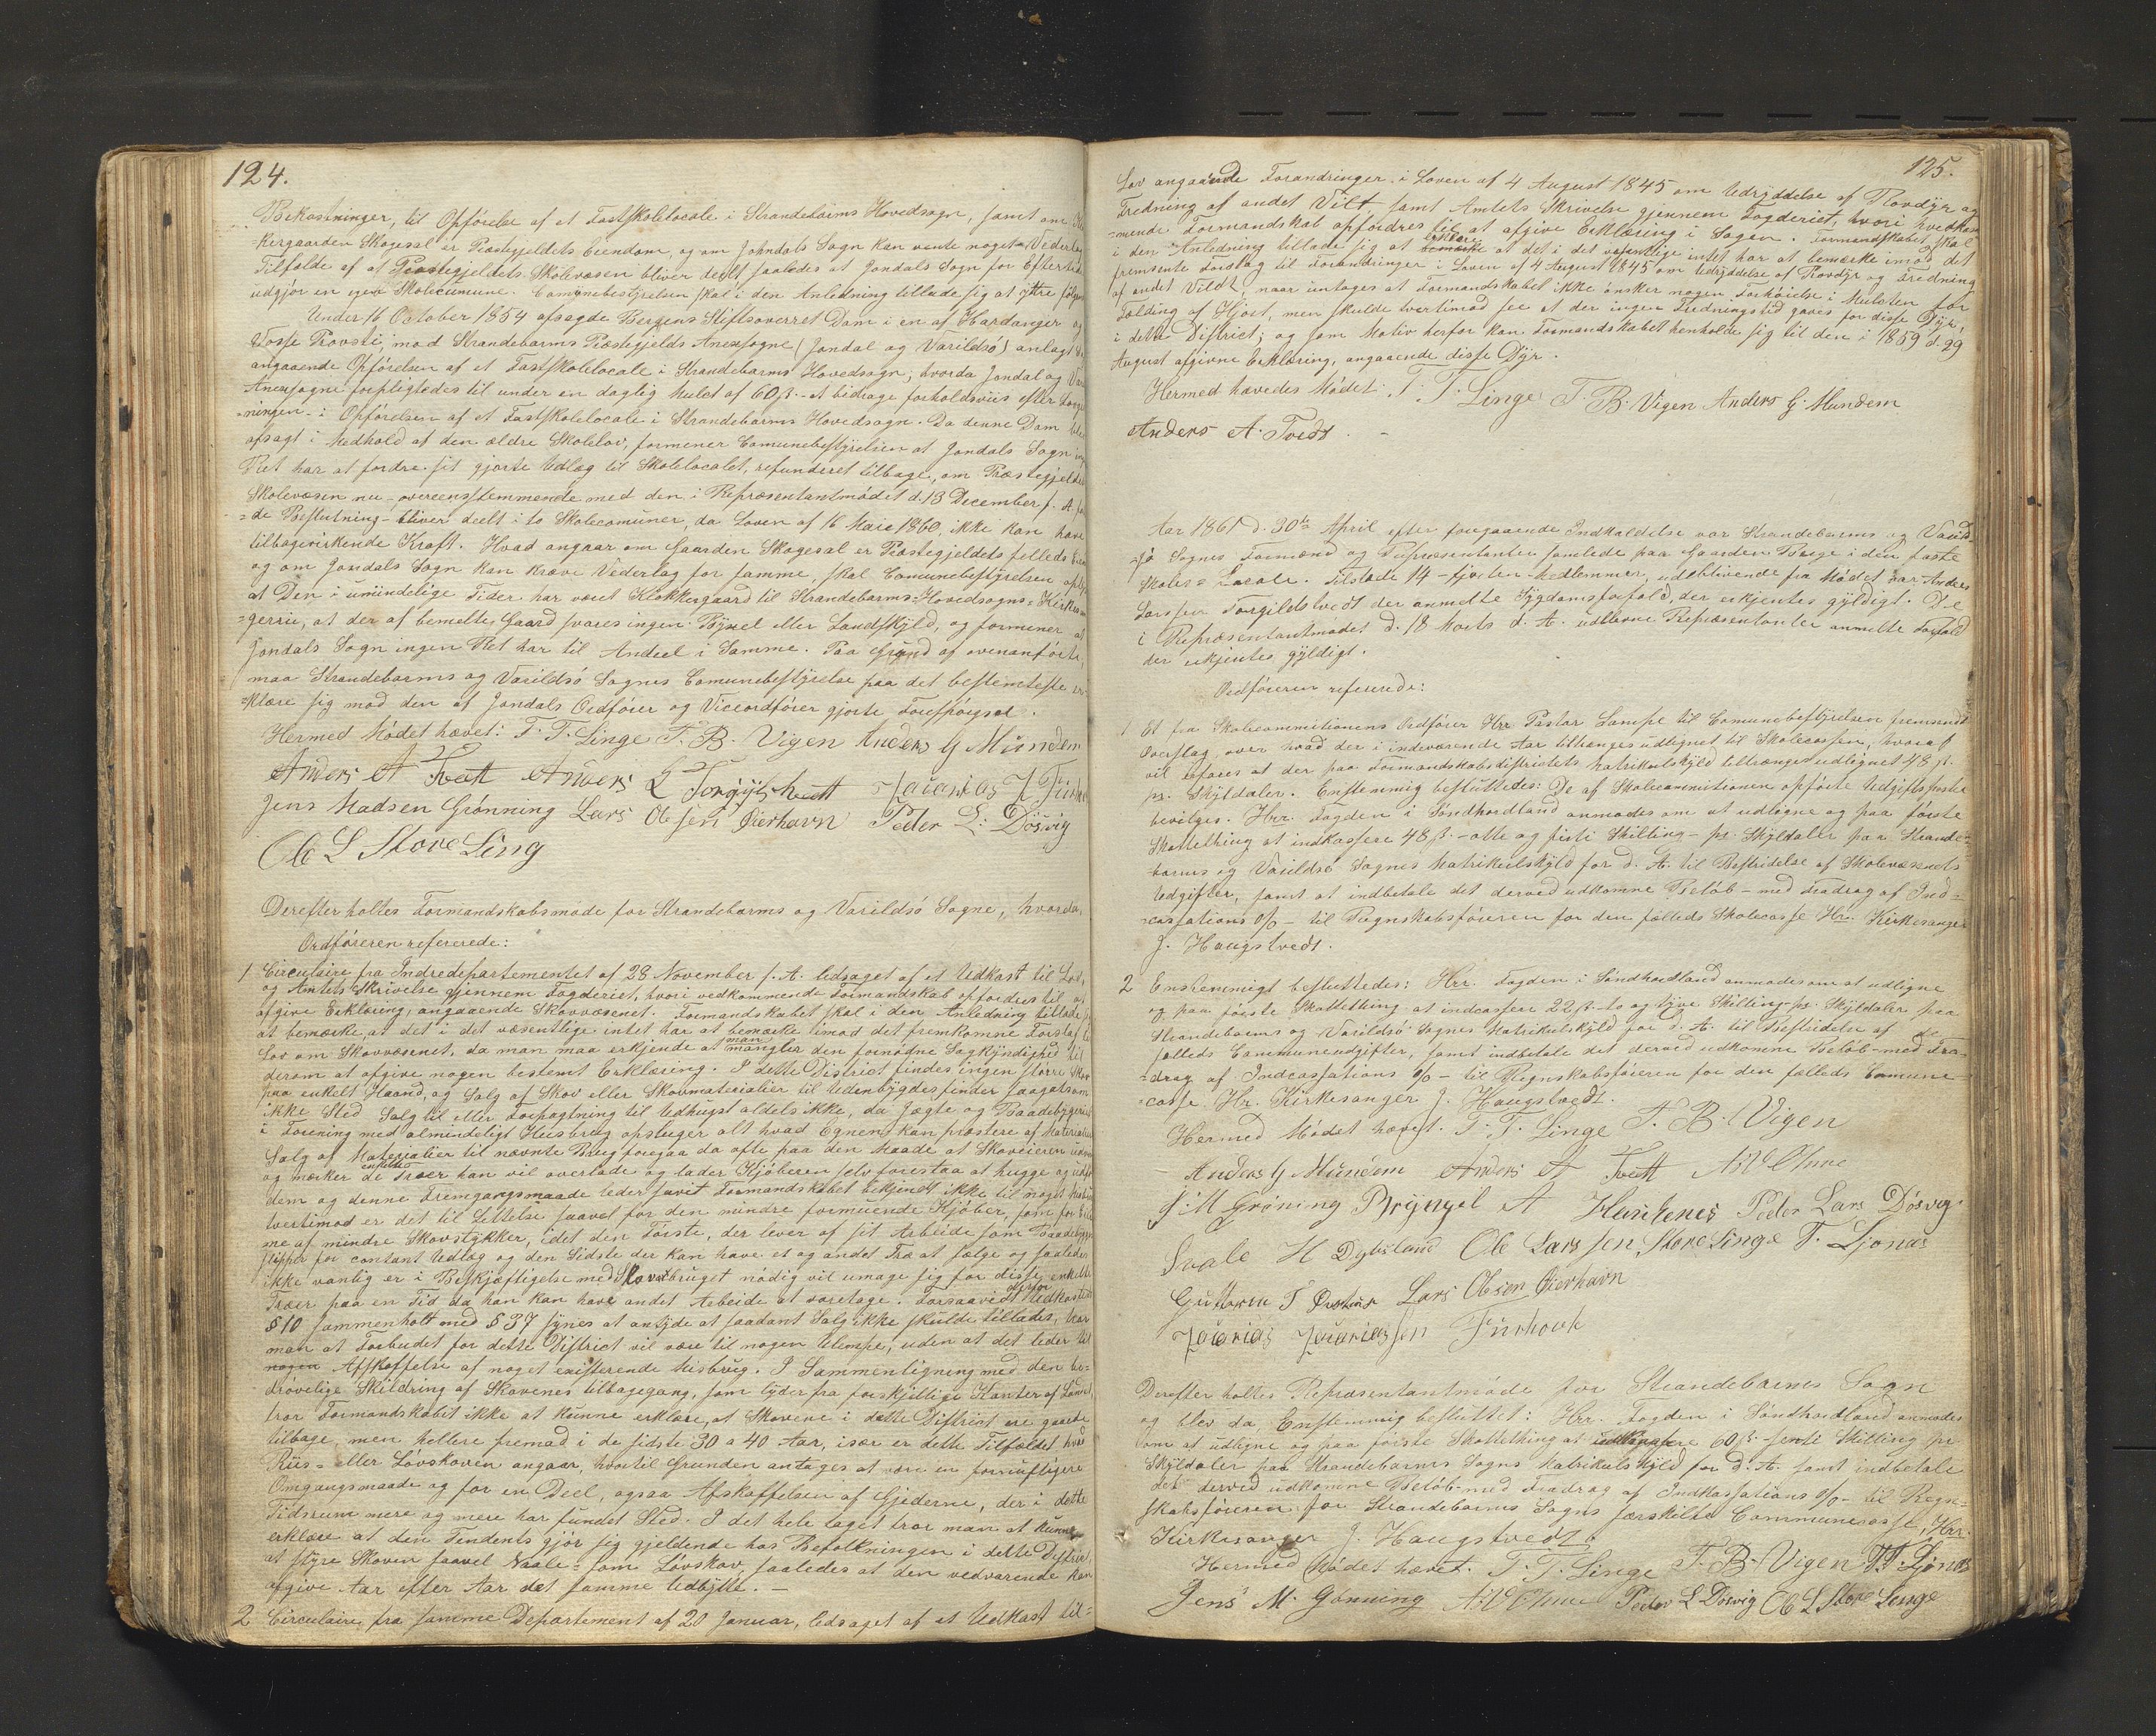 124.
Bekostninger, til Opførelse af et Fastskolelocale i Strandebarms Hovedsogn, samt om
=kergaarden Skogesal er Præstegjeldets Eiendom, og om Johndals Sogn kan vente noget Vederlag
Tilfælde af at Præstegjeldets Skolevæsen bliver deelt saaledes at Jondals Sogn for Eftertiden
udgjør en egen Skolecomune. Comunebestyrelsen skal i den Anledning tillade sig at yttre følgende
Under 16 October 1854 afsagde Bergens Stiftsoverret Dom i en af Hardanger og
Vosse Provsti, mod Strandebarms Præstegjelds Anexsogne (Jondal og Varildsø) anlagt
angaaende Opførelsen af et Fastskolelocale i Strandebarms Hovedsogn; hvorda Jondal og
Anexsogne forpligtedes til under en daglig Mulct af 60 ß. at bidrage forholdsviis efter
=ningen i Opførelsen af et Fastskolelocale i Strandebarms Hovedsogn. Da denne Dom blev
afsagt i Medhold af den ældre Skolelov, formener Comunebestyrelsen at Jondals Sogn
Ret har at fordre sit gjorte Udlæg til Skolelocalet, refunderet tilbage, om Præstegjeldets
Skolevæsen nu - overeensstemmende med den i Repræsentantmødet d. 13 December f. A.
=de Beslutning - bliver deelt i to Skolecomuner, da Loven af 16 Maie 1860, ikke kan have
tilbagevirkende Kraft. Hvad angaar om Gaarden Skogesal er Præstegjeldets felleds
og om Jondals Sogn kan kræve Vederlag for samme, skal Comunebestyrelsen
at Den i umindelige Tider har været Klokkergaard til Strandebarms=Hovedsogns=
=gerrie, at der af bemeldte Gaard svares ingen Bøxel eller Landskyld, og formener at
Jondals Sogn ingen Ret har til Andeel i Samme. Paa Grund af ovenanførte,
maa Strandebarms og Varildsø Sognes Comunebestyrelse paa det bestemteste er=
=klære sig mod den af Jondals Ordfører og Viceordfører gjorte Forespørgsel.
Hermed Mødet hævet: T. T. Linge T. B. Vigen Anders G Mundem
Anders A Tvett Anders L Torgilstvett Zacarias Z
Jens Madsen Grønning Lars Olsen Øierhavn Peder L: Døsvig
Ole L Store Ling
Derefter holtes Formandskabsmøde for Strandebarms og Varildsø Sogne, hvorda
Ordføreren refererede:
1 Circulaire fra Indredepartementet af 28 November f. A. ledsaget af et Udkast til Lov,
og Amtets Skrivelse gjennem Fogderiet, hvori vedkommende Formandskab opfordres til at
afgive Erklæring, angaaende Skovvæsenet. Formandskabet skal i den Anledning tillade
at bemærke, at det i det væsentlige intet har at bemærke imod det fremkomne Forslag til
Lov om Skovvæsenet, da man maa erkjende at man mangler den fornødne Sagkyndighed til
derom at afgive nogen bestemt Erklæring. I dette District findes ingen større Skov
paa enkelt Haand, og Salg af Skov eller Skovmaterialier til Udenbygdes finder saagodtsom
ikke Sted Salg til eller Forpagtning til Udhugst aldels ikke, da Jægte og Baadebyggeriet
i Forening med almindeligt Huusbrug opsluger alt hvad Egnen kan præstere af Materialier
Salg af Materialier til nævnte Brug foregaa da ofte paa den Maade at Skoveieren
og mærker de enkelte Træer han vil overlade og lader Kjøberen selv forestaa at hugge og
dem og denne Fremgangsmaade leder saavit Formandskabet bekjendt ikke til noget
tvertimod er det til Lettelse saavel for den mindre formuende Kjøber, som for
me af mindre Skovstykker, idet den Første, der lever af sit Arbeide som Baadebygger
slipper for contant Udlæg og den Sidste der kan have et og andet Træ at sælge og saaledes
ikke vanlig er i Beskjæftigelse med Skovbruget nødig vil umage sig for disse enkelte
Træer paa en Tid da han kan have andet Arbeide at foretage. Forsaavidt derfor Udkastets
§ 10 sammenholt med § 37 synes at antyde at saadant Salg ikke skulde tillades, tror
man at Forbudet for dette District vil være til nogen Ulempe, uden at det leder til
nogen Afskaffelse af noget existerende Misbrug. I Sammenligning med den be=
drøvelige Skildring af Skovenes tilbagegang, som lyder fra forskjellige Kanter af Landet,
tror Formandskabet ikke at kunne erklære, at Skovene i dette District ere gaaede
tilbage, men hellere fremad i de sidste 30 a 40 Aar, især er dette Tilfældet hvad
Riis= eller Løvskoven angaar, hvortil Grunden antages at være en fornuftigere
Omgangsmaade og for en Deel, ogsaa Afskaffelsen af Gjederne, der i dette
Tidsrum mere og mere har fundet Sted. I det hele taget tror man at kunne
erklære at den Tendents gjør sig gjeldende hos Befolkningen i dette District,
at styre Skoven saavel Naale= som Løvskov, saaledes at den vedvarende kan
afgive Aar efter Aar det samme Udbytte. -
2 Circulaire fra samme Departement af 20 Januar, ledsaget af et Udkast til=
125.
Lov angaaende Forandringer i Loven af 4 August 1845 om Udryddelse af Rovdyr og
Fredning af andet Vilt, samt Amtets Skrivelse gjennem Fogderiet, hvori hvedkom=
=mende Formandskab opfordres til at afgive Erklæring i Sagen. Formandskabet skal
i den Anledning tillade sig at bemærke erklære at det i det væsentlige intet har at bemærke imod det
fremsente Forslag til Forandringer i Loven af 4 August 1845 om Udryddelse af Rovdyr og Fredning
af andet Vildt, naar untages at Formandskabet ikke ønsker nogen Forhøielse i Mulcten for
Fælding af Hjort, men skulde tvertimod see at der ingen Fredningstid gaves for disse Dyr,
i dette District; og som Motiv herfor kan Formandskabet henholde sig til den i 1859 d. 29
August afgivne Erklæring, angaaende disse Dyr.
Hermed hævedes Mødet: T. T. Linge T. B. Vigen Anders G. Mundem
Anders A. Tvedt. -
Aar 1861 d. 30te April efter foregaaende Indkaldelse var Strandebarms og Varild=
=sø Sognes Formænd og Repræsentanter samlede paa Gaarden Berge i den faste
Skoles= Locale. Tilstede 14 - fjorten Medlemmer, udeblivende fra Mødet var Anders
Larssen Torgildstvedt der anmeldte Sygdomsforfald, der erkjentes gyldigt. De
i Repræsentantmødet d. 18 Marts d. A. udeblevne Repræsentanter anmeldte Forfald
der erkjentes gyldigt.
Ordføreren refererede:
1 Et fra Skolecommitionens Ordfører Hrr Pastor Lampe til Comunebestyrelsen fremsendt
Overslag over hvad der i indeværende Aar tiltrænges udlignet til Skolecassen, hvoraf
vil erfares at der paa Formandskabsdistrictets Matrikulskyld tiltrænges udlignet 48 ß.
pr. Skyldaler. Enstemmig besluttedes: De af Skolecommitionen opførte Udgiftsposter
bevilges. Hrr. Fogden i Søndhordland anmodes om at udligne og paa første
Skattething at indkassere 48 ß. - otte og firti Skilling - pr. Skyldaler paa Strande=
=barms og Varildsø Sognes Matrikulskyld for d. A. til Bestridelse af Skolevæsenets
Udgifter, samt at indbetale det derved udkomne Beløb - med Fradrag af Ind=
=cassations % - til Regnskabsføreren for den fælleds Skolecasse Hr. Kirkesanger
J. Haugstvedt.
2 Enstemmigt besluttedes: Hrr. Fogden i Søndhordland anmodes om at udligne
og paa første Skattething at indcassere 22 ß. - to og tyve Skilling - pr. Skyldaler paa
Strandebarms og Varildsø Sognes Matrikulskyld for d. A. til Bestridelse af de
fælleds Communeudgifter, samt indbetale det derved udkomne Beløb - med Fra=
=drag af Indcassations % - til Regnskabsføreren for den fælleds Comune=
=casse, Hr. Kirkesanger J. Haugstvedt.
Hermed Mødet hævet. T. T. Linge T. B. Vigen
Anders G Mundem Anders A Tvett
J: M Grøning Bryngel A Hustenes Peder Lars Døsvig
Svale H Dybsland Ole Larssen Store Linge T. Ljonæs
Guttorm T Lars Olsen Øierhavn
Zacarias Zacariassen
Derefter holtes Repræsentantmøde for Strandebarms Sogn
og blev da Enstemmig besluttet: Hrr. Fogden i Søndhordland anmodes
om at udligne og paa første Skattething at indkassere 60 ß. - senti Skilling pr
Skyldaler paa Strandebarms Sogns Matrikulskyld for d. A. samt indbetale
det derved udkomne Beløb - med Fradrag af Indkassations % - til Regn=
skabsføreren for Strandebarms Sogns særskilte Communecasse, Hrr.
Kirkesanger J. Haugstvedt.
Hermed Mødet hævet. T. T. Linge T. B. Vigen T. Ljonæs
Jens M. Gønning Peder L Døsvig Ole L Store Linge